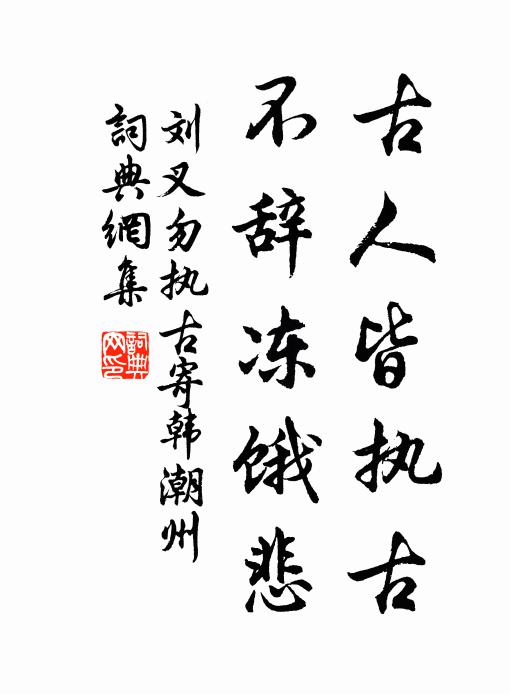 古人皆执古
不辞冻饿悲
刘叉勿执古寄韩潮州
詞典網集
詞典
网印